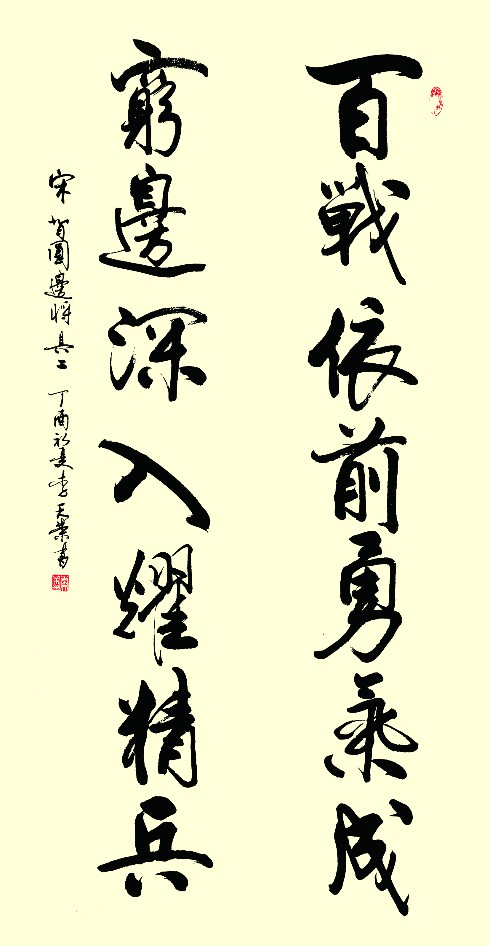 百戰依前勇氣成
窮邊深入耀精兵
宋 賀圓邊將其二 丁酉初夏李天榮書